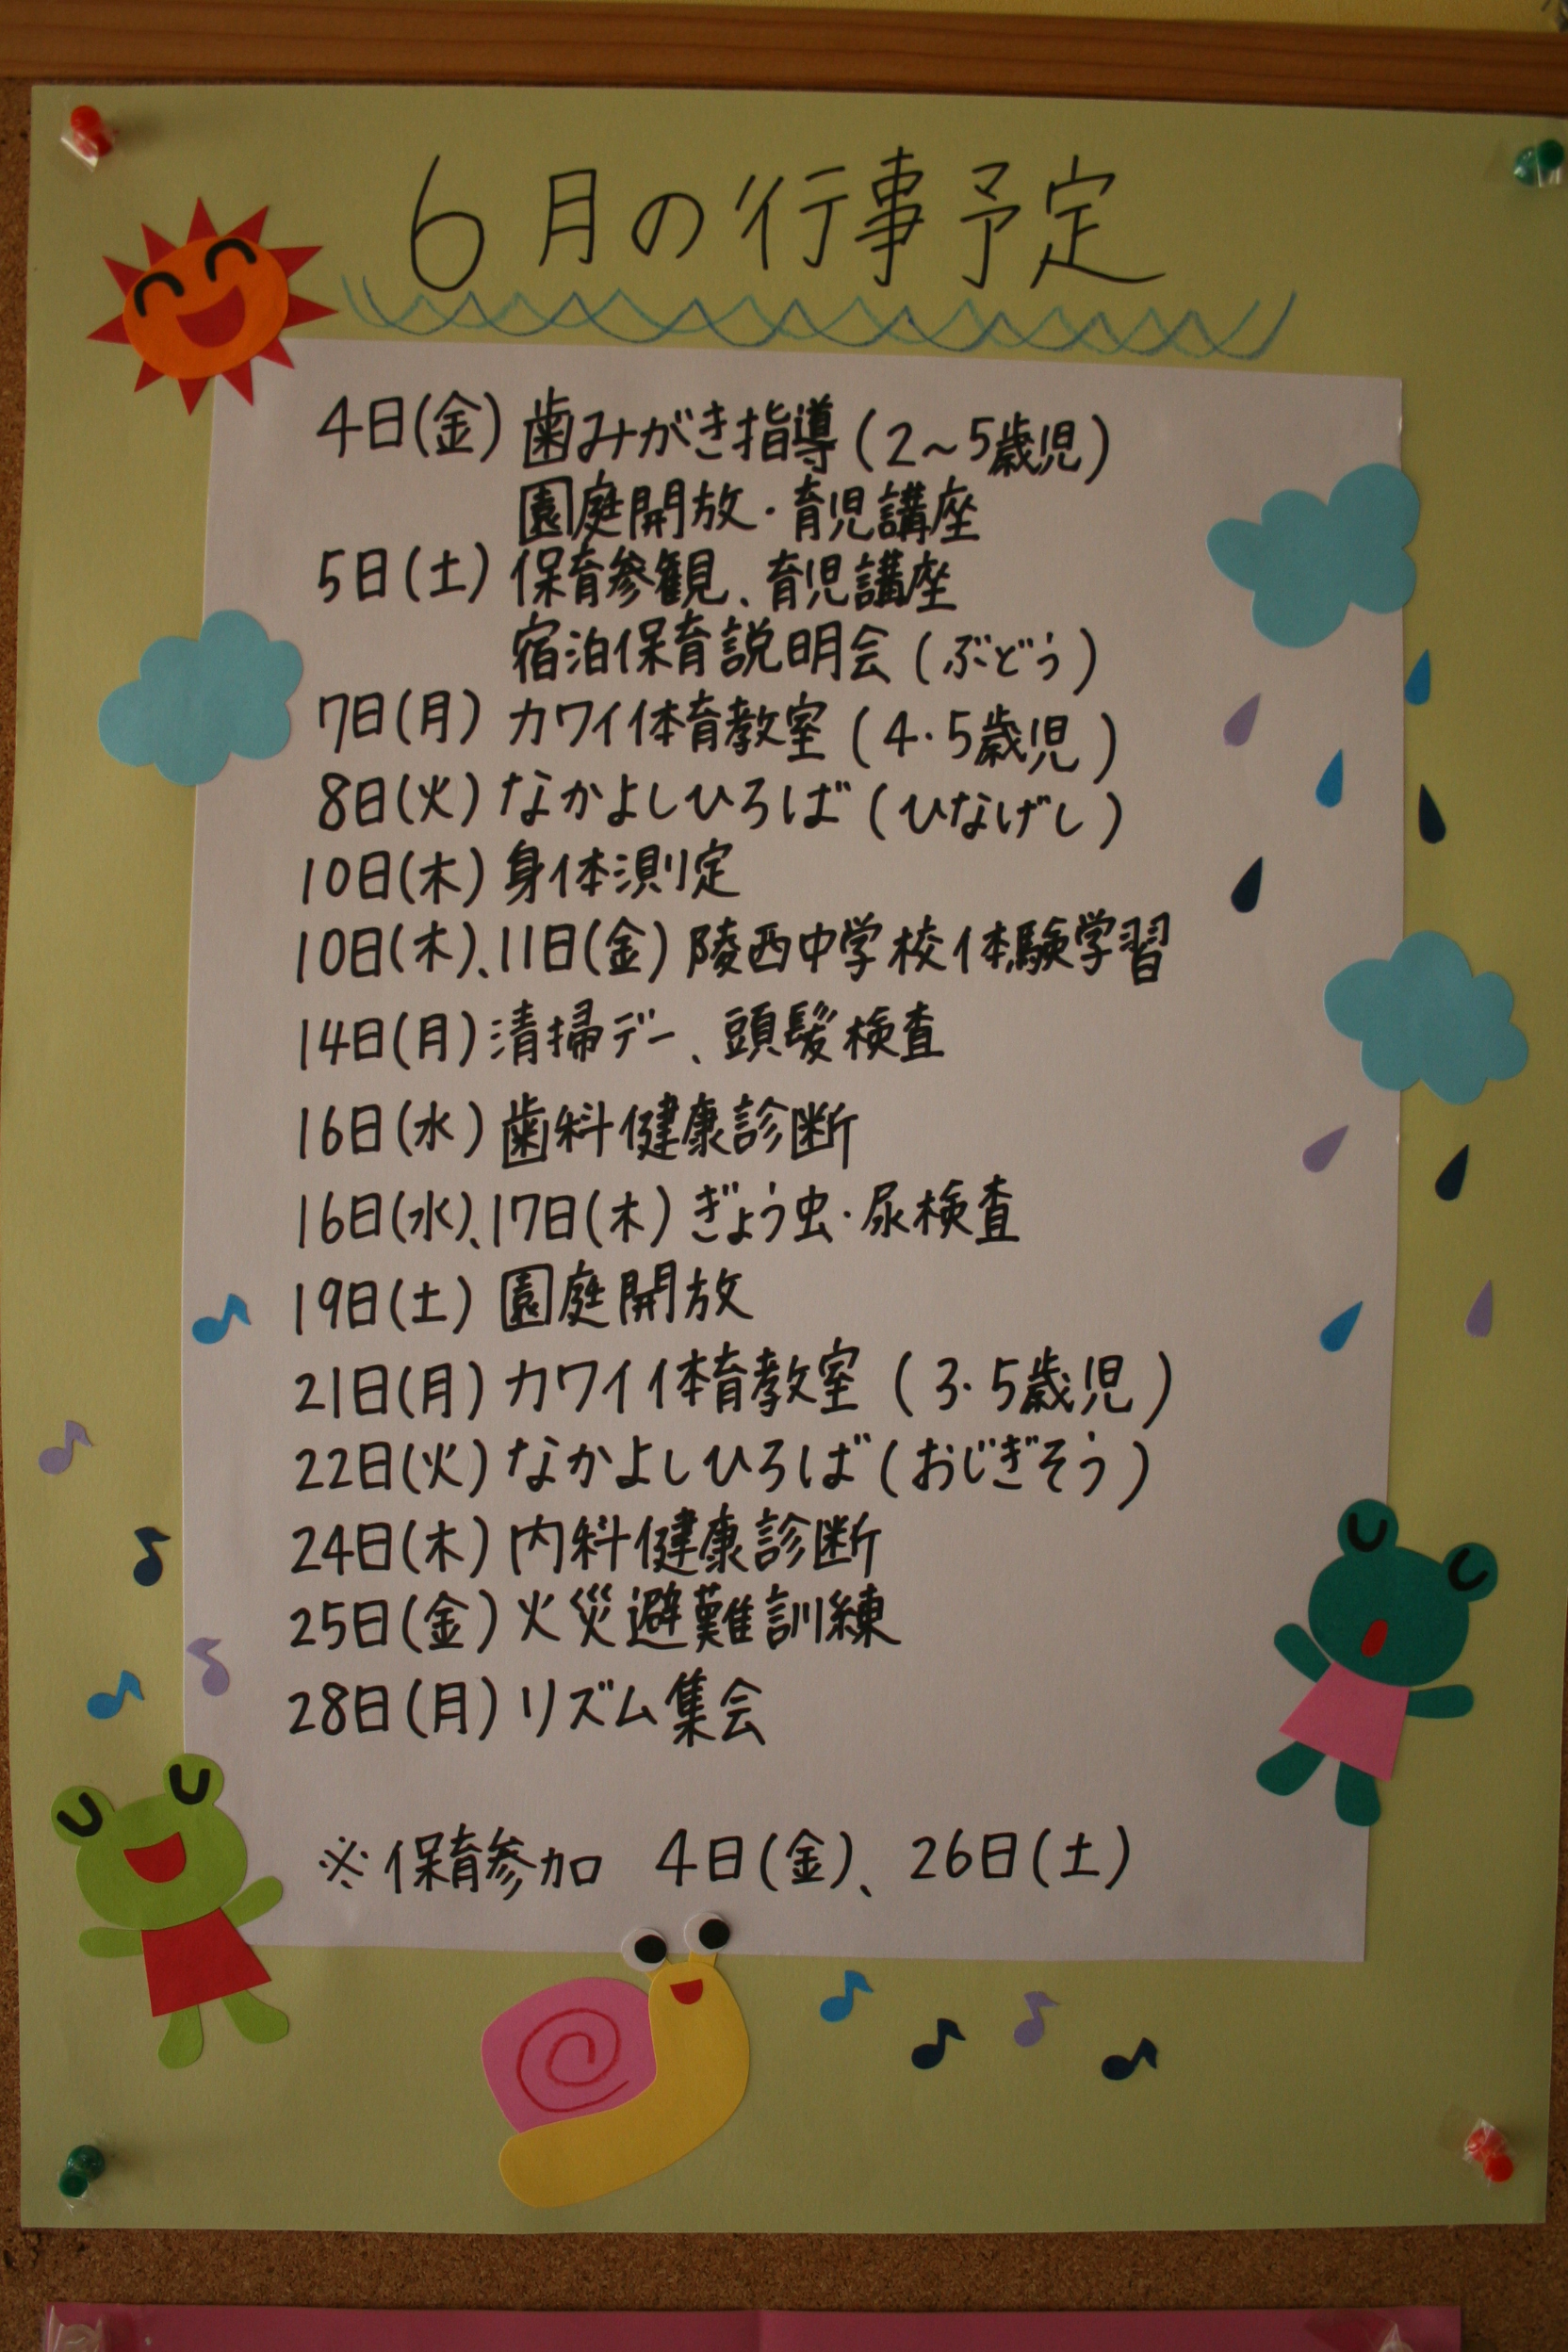 6月の行事予定
4日(金) 歯みがき指導(2~5歳児)
園庭開放・育児講座
5日(土) 保育参観、育児講座
宿泊保育説明会(ぶどう)
7日(月) カワイ体育教室(4・5歳児)
8日(火) なかよしひろば(ひなげし)
10日(木) 身体測定
10日(木)、11日(金) 陵西中学校体験学習
14日(月) 清掃デー、頭髪検査
16日(水) 歯科健康診断
16日(水)、17日(木) ぎょう虫・尿検査
19日(土) 園庭開放
21日(月) カワイ体育教室(3・5歳児)
22日(火) なかよしひろば(おじぎそう)
24日(木) 内科健康診断
25日(金) 火災避難訓練
28日(月) リズム集会
※保育参加 4日(金)、26日(土)